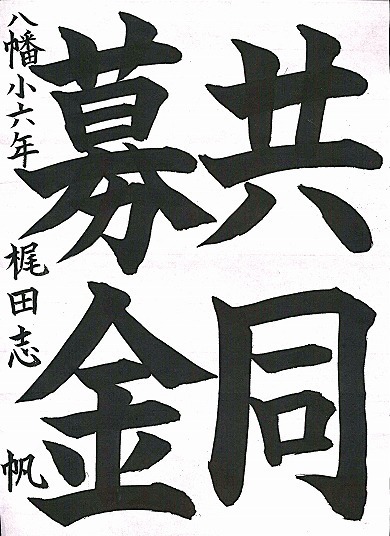 共同
募金
八幡小六年 梶田志帆